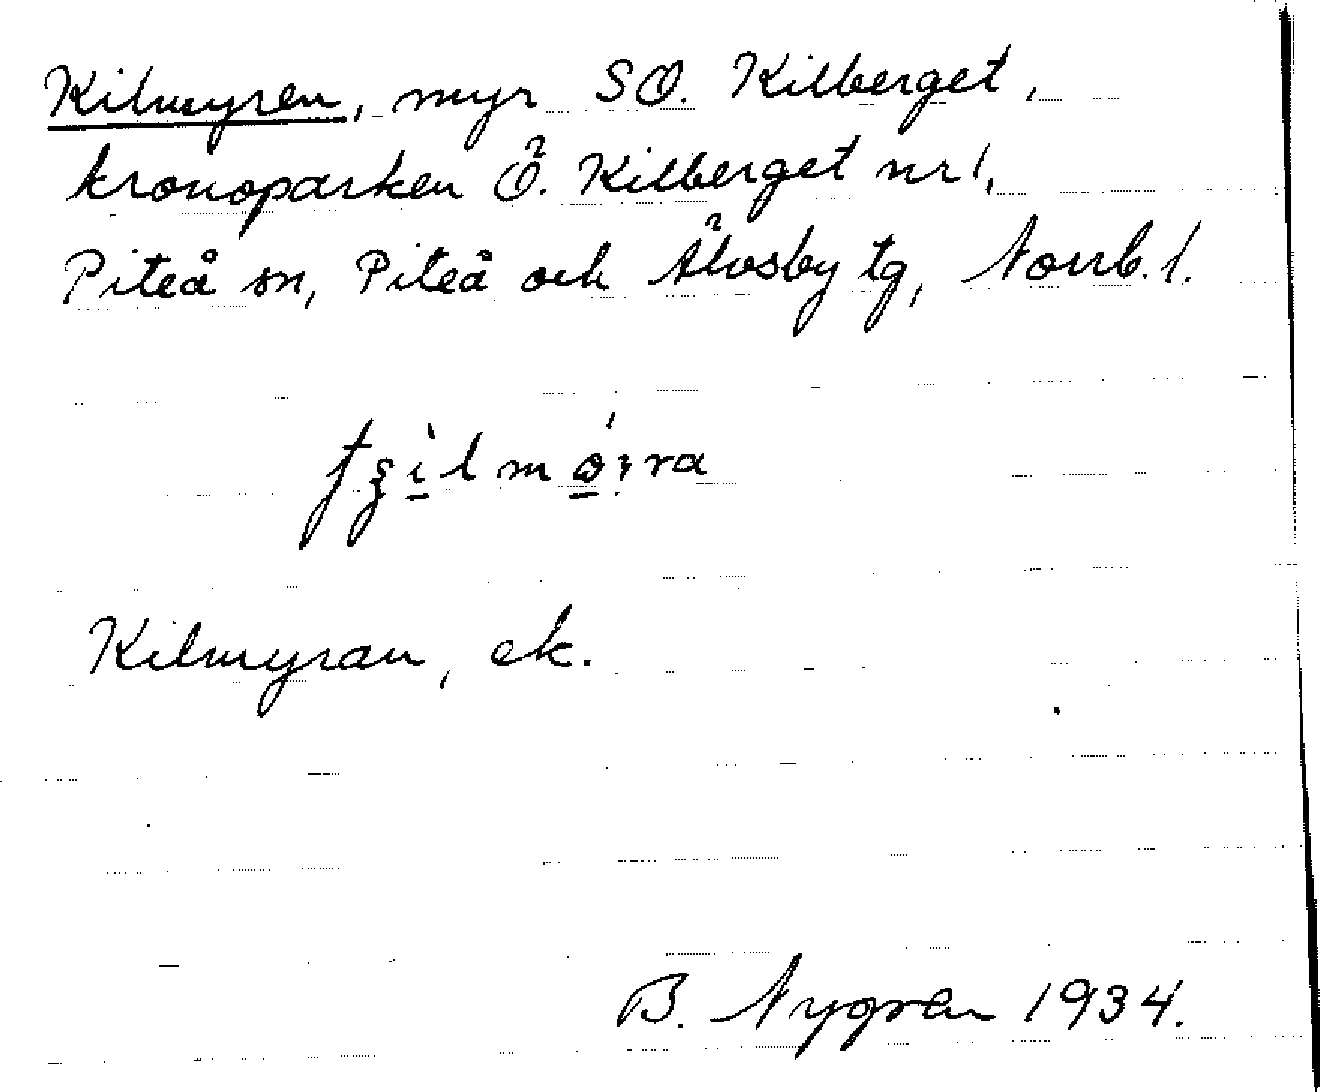 Kilmyren, myr SO. Kilberget,
kronoparken Ö. Kilberget nr 1,
Piteå sn, Piteå och Älvsby tg, Norrb. l.
Kilmyran, ek.
B. Nygren 1934.